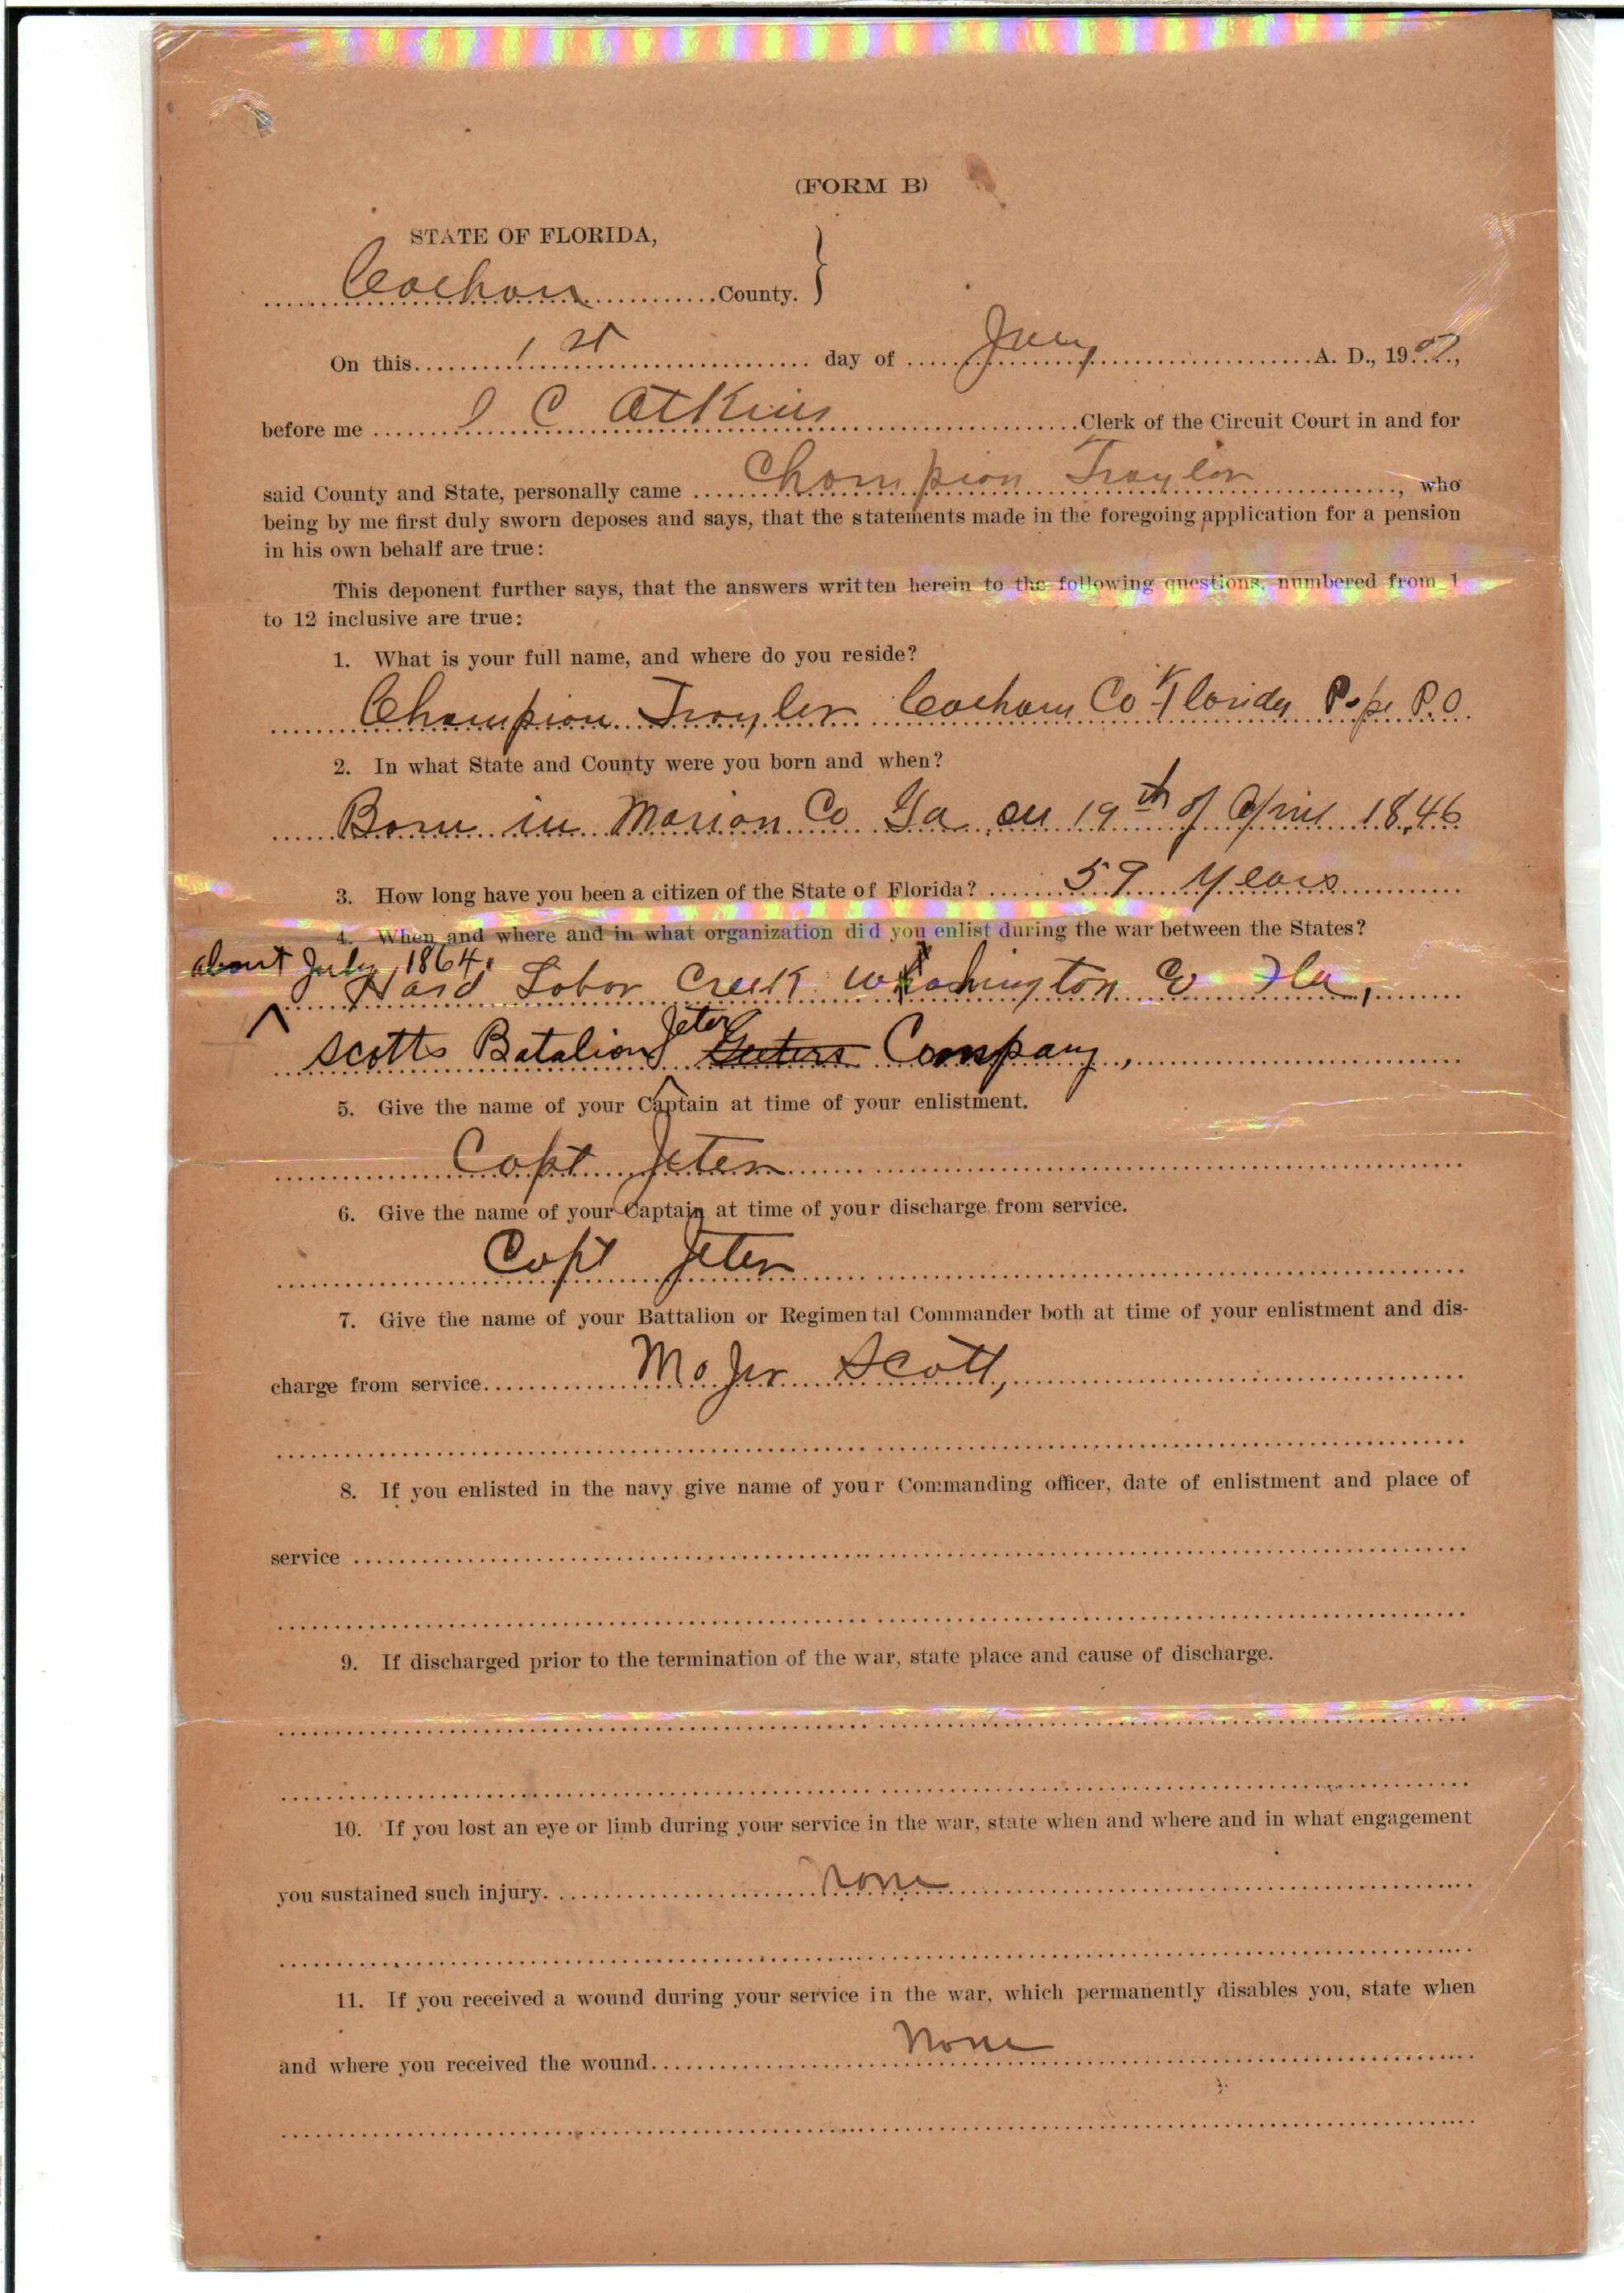 (FORM B)
STATE OF FLORIDA,
County.
On this 1st day of July A. D., 1907,
before me C Atkins Clerk of the Circuit Court in and for
said County and State, personally came Champion Traylor, who
being by me first duly sworn deposes and says, that the statements made in the foregoing application for a pension
in his own behalf are true:
This deponent further says, that the answers written herein to the following questions, numbered from 1
to 12 inclusive are true:
1. What is your full name, and where do you reside?
Champion Trayler Co Florida Pope P.O.
2. In what State and County were you born and when?
Born in Marion Co Ga on 19th of April 1846
3. How long have you been a citizen of the State of Florida? 59 Years
4. When and where and in what organization did you enlist during the war between the States?
about July 1864.
Hard Labor Creek Washington Co Fla,
Jeter
Scotts Batalion Company,
5. Give the name of your Captain at time of your enlistment.
Capt Jeter
6. Give the name of your Captain at time of your discharge from service.
Capt Jeter
7. Give the name of your Battalion or Regimental Commander both at time of your enlistment and dis-
charge from service Majer Scott,
8. If you enlisted in the navy give name of your Commanding officer, date of enlistment and place of
service
9. If discharged prior to the termination of the war, state place and cause of discharge.
10. If you lost an eye or limb during your service in the war, state when and where and in what engagement
you sustained such injury. None
11. If you received a wound during your service in the war, which permanently disables you, state when
and where you received the wound. None